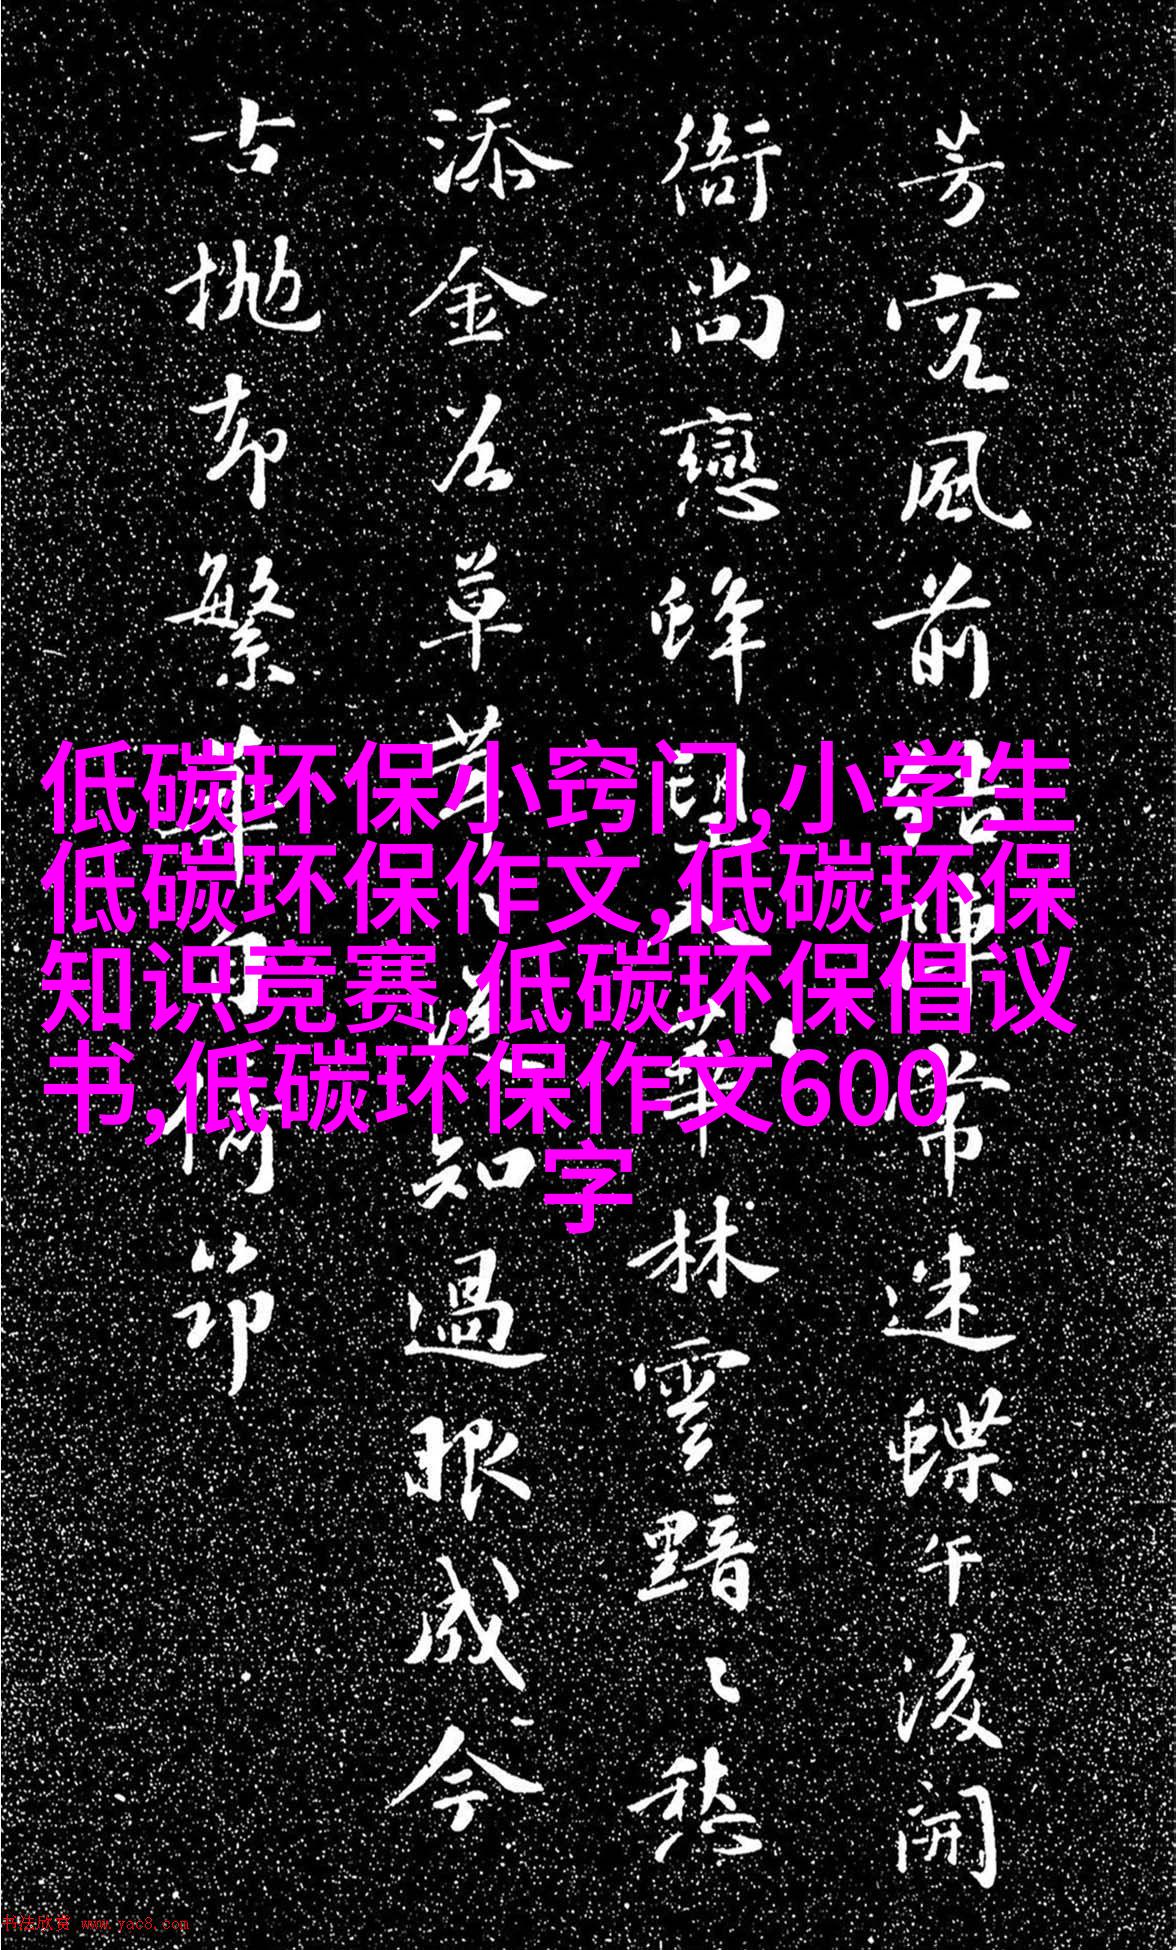 芳容風前
常迷蝶午後開
衙尚戀蜂
華林雲黯〻愁
添金谷草
知過眼成今
古拋却繁華
筇
低碳环保小窍门,小学生
低碳环保作文,低碳环保
知识竞赛,低碳环保倡议
书,低碳环保作文600
字
书法欣赏 www.yac8.com